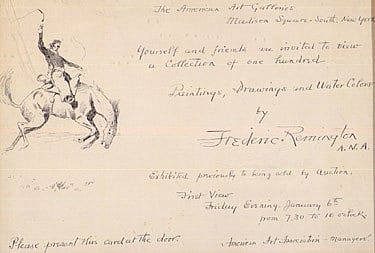 The American Art Galleries
Madison Square South, New York
Yourself and friends are invited to view
a Collection of one hundred
Paintings, Drawings and Water Colors
by
Frederic Remington
A.N.A.
Exhibited previously to being sold by Auction.
First View
Friday Evening, January 6th
from 7.30 to 10 o'clock
Please present this card at the door.
American Art Association - Managers